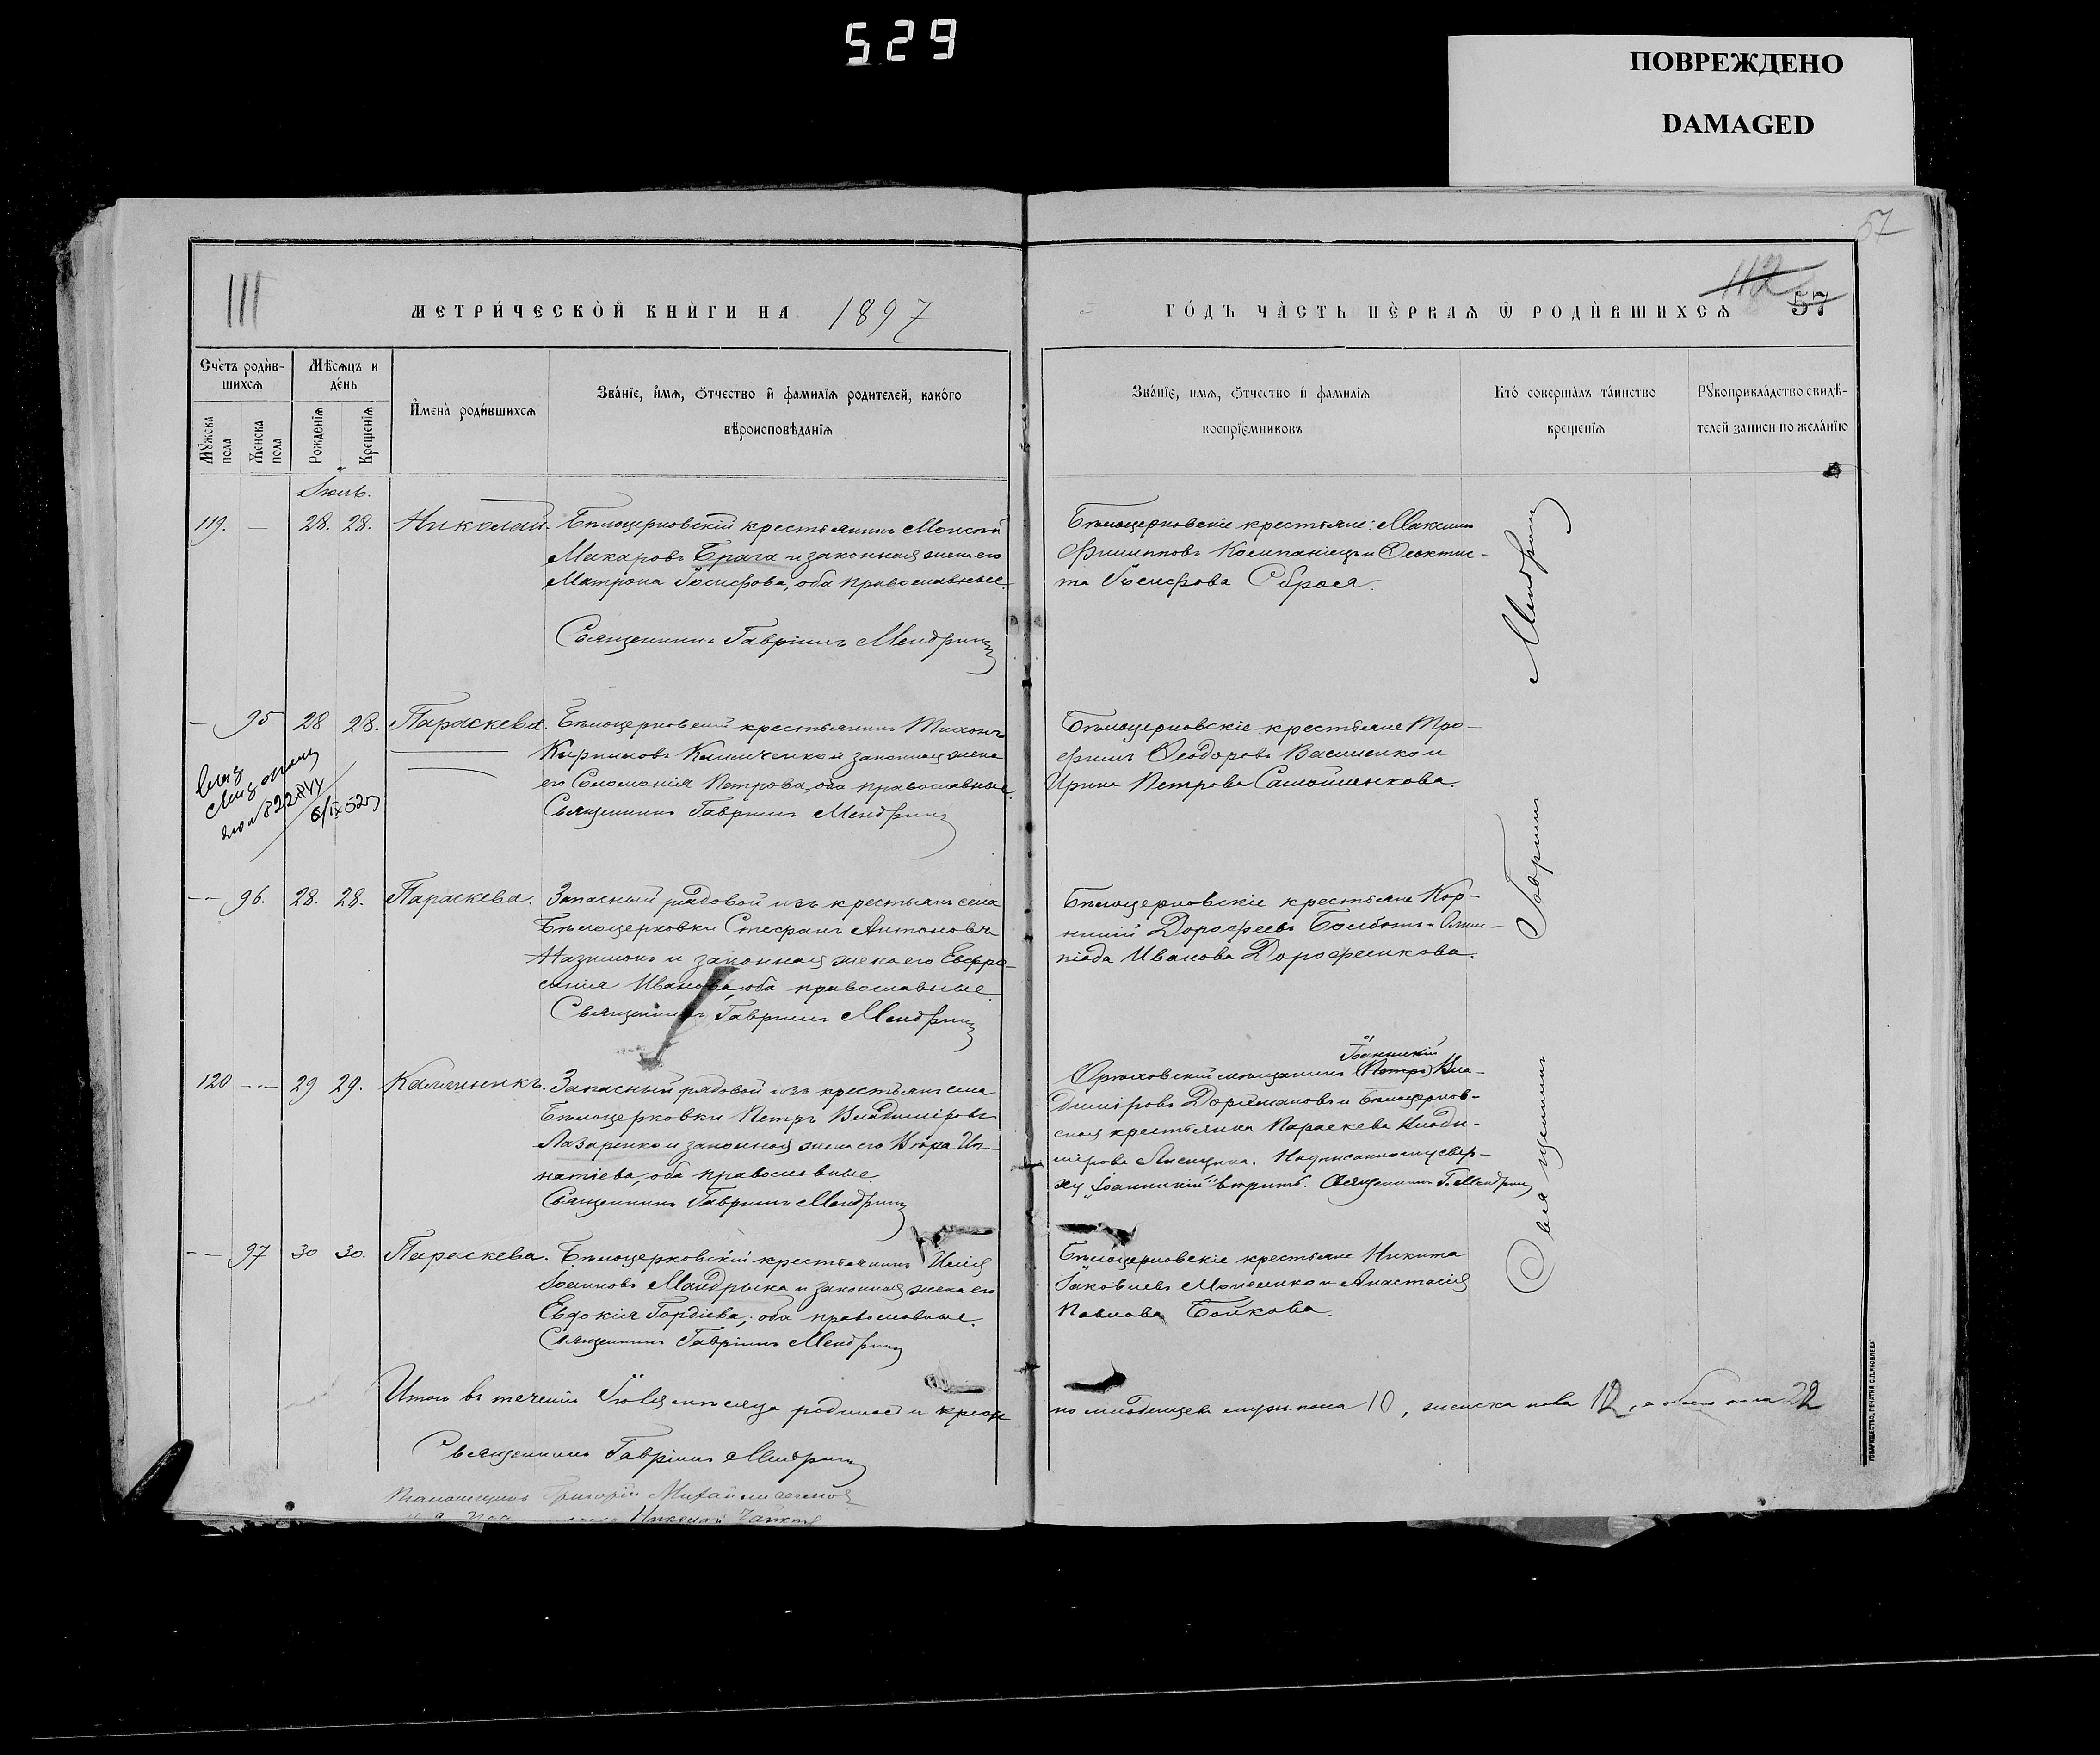 529
ПОВРЕЖДЕНО
DAMAGED
57
111
МЕТРИ́ЧЕСКОЙ КНИ́ГИ НА 1897
ГО́ДЪ ЧА́СТЬ ПЕ́РВАѦ Ѡ РОДИ́ВШИХСѦ
112
57
Сче́тъ роди́в-
шихсѧ
Мѣ́сѧцъ и
де́нь
Мꙋ́жска
пола
Же́нска
пола
Рожде́нїѧ
Креще́нїѧ
И҆мена̀ роди́вшихсѧ
Зва́нїе, и҆́мѧ, ѻ҆́тчество и҆ фами́лїѧ роди́телей, како́го
вѣроисповѣ́данїѧ
Зва́нїе, и҆́мѧ, ѻ҆́тчество и҆ фами́лїѧ
воспрїе́мниковъ
Кто́ соверша́лъ та́инство
креще́нїѧ
Рꙋкоприкла́дство свидѣ́-
телей записи по жела́нїю
Іюль.
119. — 28. 28. Николай. Бѣлоцерковскій крестьянинъ Моисей
Макаровъ Брага и законная жена его
Матрона Іосифова, оба православные.
Священникъ Гавріилъ Мендринъ
Бѣлоцерковскіе крестьяне: Максимъ
Филипповъ Компаніецъ и Ѳеоктис-
та Іосифова
— 95 28 28. Параскева. Бѣлоцерковскій крестьянинъ Тихонъ
Кирилловъ Клименко и законная жена
его Соломонія Петрова, оба православные.
Священникъ Гавріилъ Мендринъ
6/IX 52
Бѣлоцерковскіе крестьяне Тро-
фимъ Ѳеодоровъ Василенко и
Ирина Петрова Самойленкова.
— 96. 28. 28. Параскева. Запасный рядовой изъ крестьянъ села
Бѣлоцерковки Стефанъ Антоновъ
и законная жена его Евфро-
синія Иванова, оба православные.
Священникъ Гавріилъ Мендринъ
Бѣлоцерковскіе крестьяне Кор-
нилій Дороѳеевъ и Олим-
піада Иванова Дорофеенкова.
120 — 29 29. Каллиникъ. Запасный рядовой изъ крестьянъ села
Бѣлоцерковки Петръ Владиміровъ
Лазаренко и законная жена его Вѣра Иг-
натіева, оба православные.
Священникъ Гавріилъ Мендринъ
Іоанникій
Орѣховскій мѣщанинъ (Петръ) Вла-
диміровъ и Бѣлоцерков-
ская крестьянка Параскева Влади-
мірова Надписанному свер-
ху „Іоанникій“ вѣрить. Священникъ Г. Мендринъ
— 97 30 30. Параскева. Бѣлоцерковскій крестьянинъ Илія
Іоанновъ Мандрыка и законная жена его
Евдокія Гордіева, оба православные.
Священникъ Гавріилъ Мендринъ
Бѣлоцерковскіе крестьяне Никита
Іаковлевъ и Анастасія
Павлова Бойкова.
Священникъ Гавріилъ Мендринъ
Итого въ теченіи Іюля мѣсяца родилось и креще-
но младенцевъ муж. пола 10, женска пола 12, а обоего пола 22
Священникъ Гавріилъ Мендринъ
Григорій
Николай
ТОВАРИЩЕСТВО „ПЕЧАТНЯ С.П.ЯКОВЛЕВА“